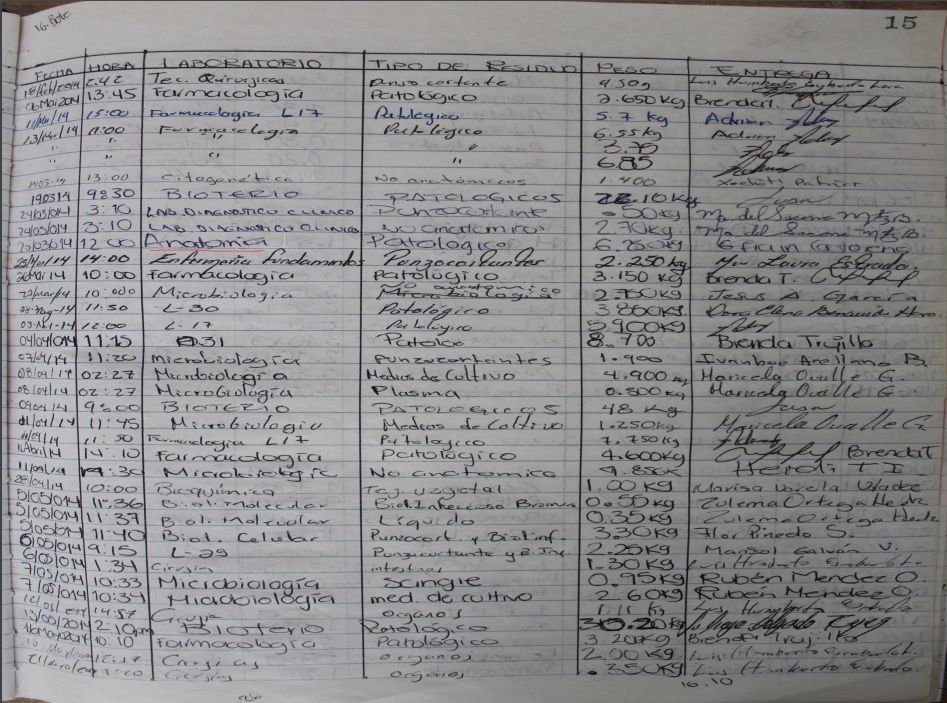 16. Bote
15
FECHA HORA LABORATORIO TIPO DE RESIDUO PESO ENTREGA
18/feb/2014 2:42 Tec. Quirurgicas Punzo cortante 930g Luis Humberto
06 Mar 2014 13:45 Farmacología Patológico 2.650 Kg Brenda T.
11/Mar/14 15:00 Farmacologia L17 Patologico 5.7 Kg Adrian
13/Mar/14 11:00 Farmacologia Patologico 6.55 Kg Adrian
" " " 3.75
" " " 6.85
1403-14 13:00 Citogenética No anatomicos 1.400 Xochitl Patricia
190314 9:30 BIOTERIO PATOLOGICOS 22.10 Kg Juan
24/03/014 3:10 LAB. DIAGNOSTICO CLINICO Punzocortante .50 Kg Ma. del Socorro
24/03/014 3:10 LAB. DIAGNOSTICO CLINICO NO anatomicos 2.70 Kg Ma. del Socorro
12:00 Anatomia Patologico 6.250 Kg
25/Mar/14 14:00 Enfermeria Fundamentos Punzocortantes 2.250 Kg Ma. Laura Estrada
10:00 Farmacología Patológico 3.150 Kg Brenda T.
10:00 Microbiologia No anatomico Microbiologia 2.750 Kg Jesus A Garcia
11:50 L-30 Patológico 3.800 Kg Dora Elena
12:00 L-17 Patologico 5.900 Kg
04/04/014 11:15 31 Patolog 8.700 Brenda Trujillo
07/04/14 11:20 Microbiología Punzocortantes 1.900 Ivanhoe Arellano B.
08/04/14 02:27 Microbiología Medios de Cultivo 4.900 Kg Maricela Ovalle G.
08/04/14 02:27 Microbiología Plasma 0.500 Kg Maricela Ovalle G
0904 14 9:00 BIOTERIO PATOLOGICOS 48 Kg Juan
11:45 Microbiologia Medios de Cultivo 1.250 Kg Maricela Ovalle G.
11/04/14 11:50 Farmacologia L17 Patologico 7.750 Kg
11 Abril 14 14:10 Farmacología Patológico 4.600 Kg Brenda T
11/04/14 :30 Microbiología No anatomico 9.850 K Heidi T I
28/04/14 10:00 Bioquímica Tej. vegetal 1.00 KG Marisa
5/05/014 11:36 Biol Molecular Biol. Infeccioso Bromuro 0.55 Kg Zulema Ortega Hdz
5/05/014 11:37 Biol. Molecular Líquido 0.35 Kg Zulema Ortega Hdz
5/05/014 11:40 Biol. Celular Punzocort. y Biol. inf. 3.30 Kg Flor Pinedo S.
6/05/014 9:15 L-29 Punzocortante y B. Inf. 2.25 Kg Marisol Galván V.
6/05/014 1:34 Cirugia intestinos 1.30 Kg Luis Humberto
7/05/014 10:33 Microbiología Sangre 0.95 Kg Rubén Mendez O.
7/05/014 10:34 Microbiología med. de cultivo 2.60 Kg Rubén Mendez O.
14:57 Cirugia organos 1.11 Kg Luis Humberto
13/05/2014 2:10pm Bioterio Patológico 30.20 Kg Diego Delgado
10:10 Farmacología Patológico 3.20 Kg Brenda Trujillo
12:17 Cirugias organos 2.00 Kg Luis Humberto
Cirugias organos .350 Kg Luis Humberto
16.10